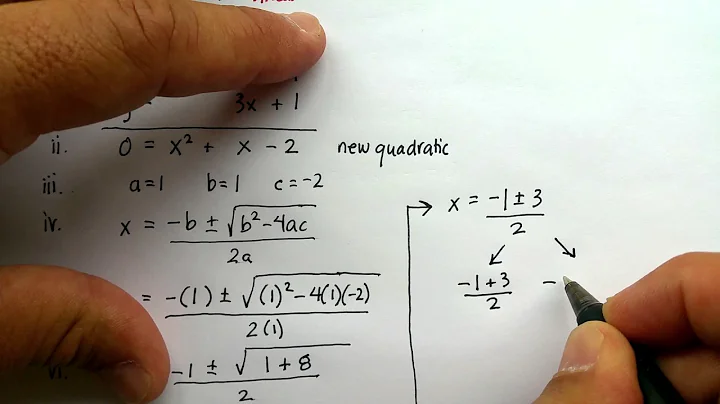 3x + 1
ii. 0 = x² + x - 2 new quadratic
iii. a=1 b=1 c=-2
iv. x = -b ± √b²-4ac / 2a
= -(1) ± √(1)²-4(1)(-2) / 2(1)
vi. -1 ± √1+8 / 2
x = -1 ± 3 / 2
-1+3 / 2 -